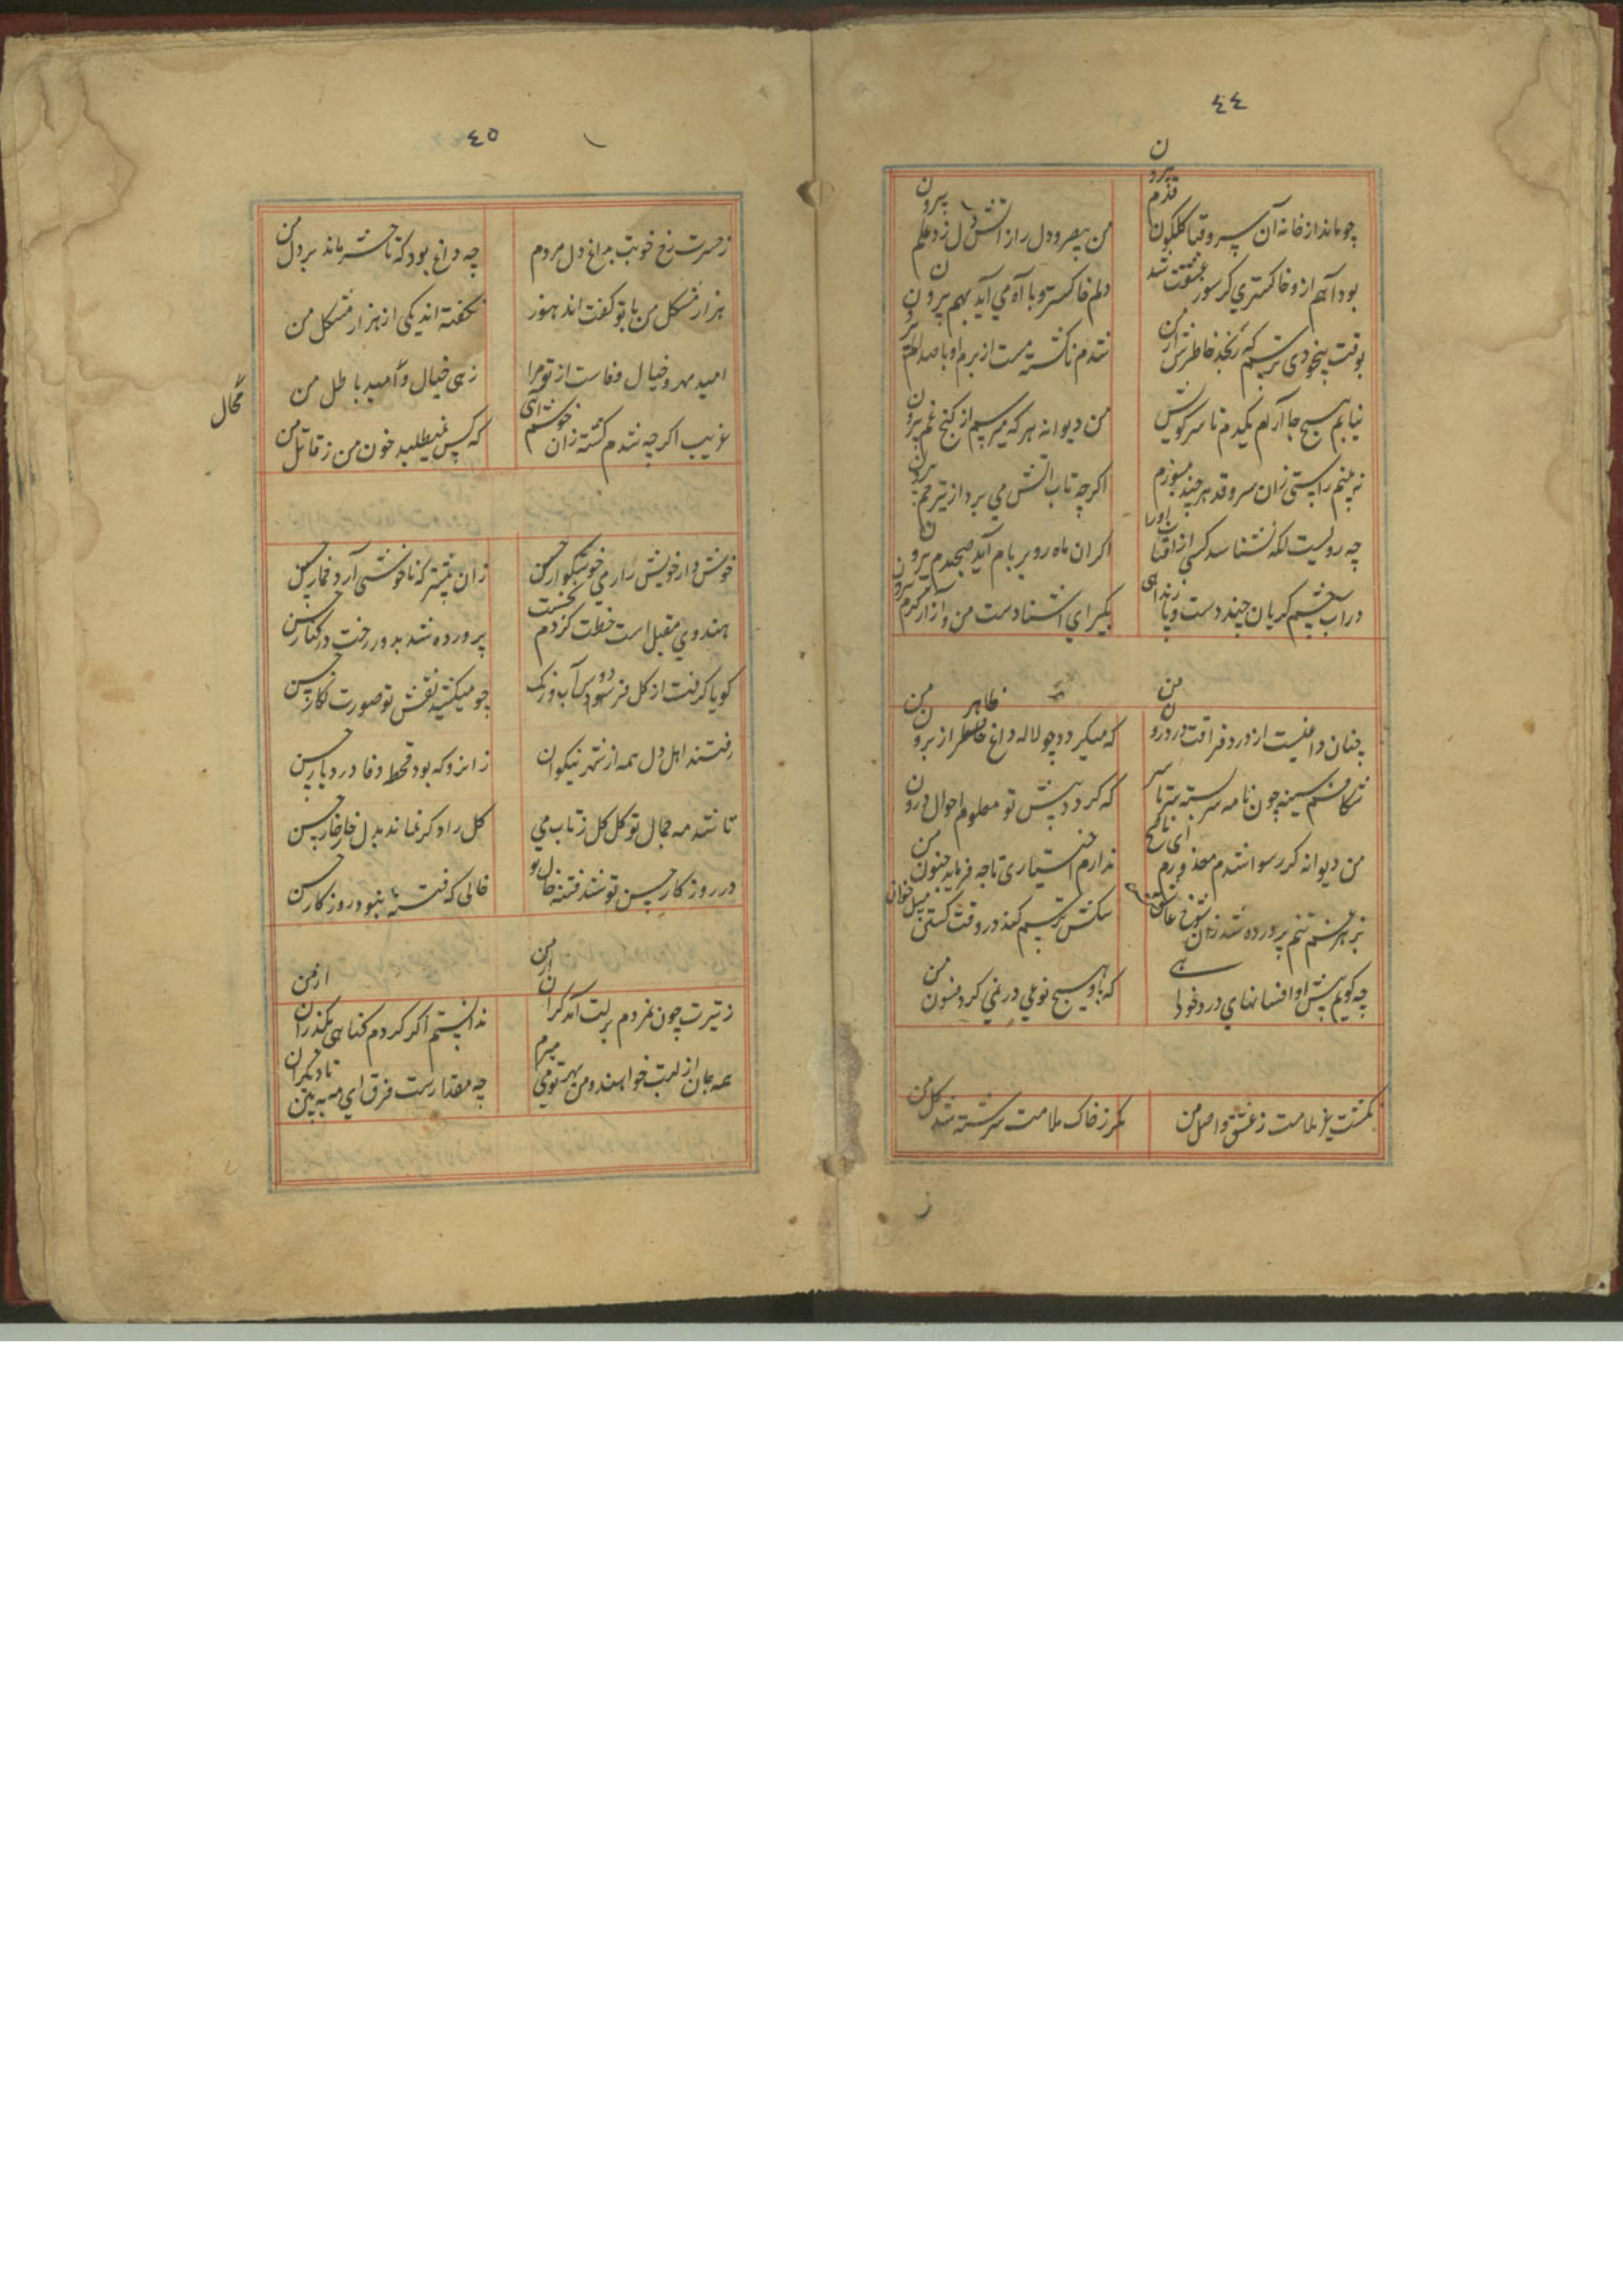 ٤٤
چو ماند از خانه آن سرو قبا گلگون قدم بیرون
من بیصبر و دل را ز آتش دل زد علم بیرون
بود آهم ازو خاکستری کز سوز عشقت شد
دلم خاکستر و با آه می آید بهم بیرون
بوقت بیخودی ترسم که رنجد خاطرش از من
شدم ناگشته مست از بزم او با صد الم بیرون
نیابم هیچ جا آرام یکدم تا سر کویش
من دیوانه هر که میرسم از کنج غم بیرون
نه بینم راستی زان سرو قد هر چند میسوزم
اگر چه تاب آتش می برد از تیر خم بیرون
چه رویست آنکه نشناسد کسی از آفتاب او را
اگر آن ماه رو بر بام آید صبحدم بیرون
در آب چشم گریان چند دست و پا زند آهی
بگیر ای آشنا دست من و آر از کرم بیرون
چنان داغیست از درد فراقت در درون من
که میگردد چو لاله داغ ظاهر از برون من
شکافم سینه چون نامه سر بسته سر تا سر
که گردد پیش تو معلوم احوال درون من
من دیوانه گر رسوا شدم معذورم ای ناصح
ندارم اختیاری تا چه فرماید جنون من
بزهر غم تنم پرورده شد زان شوخ عاشق کش
سگش ترسم کند در وقت کشتن میل خون من
چه گویم پیش او افسانهای درد خود آهی
که با او هیچ نوعی در نمی گیرد فسون من
بگشت غیر ملامت ز عشق حاصل من
مگر ز خاک ملامت سرشته شد گل من
ز
٤٥
ز حسرت رخ خوبت بداغ دل مردم
چه داغ بود که تا حشر ماند بر دل من
هزار مشکل من با تو گفت اند هنوز
نگفته اند یکی از هزار مشکل من
امید مهر و خیال وفاست از تو مرا
زهی خیال و امید باطل من
محال
غریب اگر چه شدم کشته زان خوشم آهی
که کس نمیطلبد خون من ز قاتل من
خوش دار خویش را ز می خوشگوار حسن
زان پیشتر که ناخوشی آرد خمار حسن
هندوی مقبل است خطت کز دم نخست
پرورده شد بدور رخت در کنار حسن
گویا گرفت از گل فردوس آب و رنگ
چو میکشید نقش تو صورت نگار حسن
رفتند اهل دل همه از شهر نیکوان
زانرو که بود قحط وفا در دیار حسن
تا شد مه جمال تو گل گل ز تاب می
گل را دگر نماند بدل خار خار حسن
در روزگار حسن تو شد فتنه خال تو
خالی که فتنه نبود روزگار حسن
ز تیرت چون نمردم بر لبت آمد گران از من
ندانستم اگر کردم گناهی بگذران از من
همه جان از لبت خواهند و من بهر تو می میرم
چه مقدارست فرق ای مه به بین تا دیگران از من